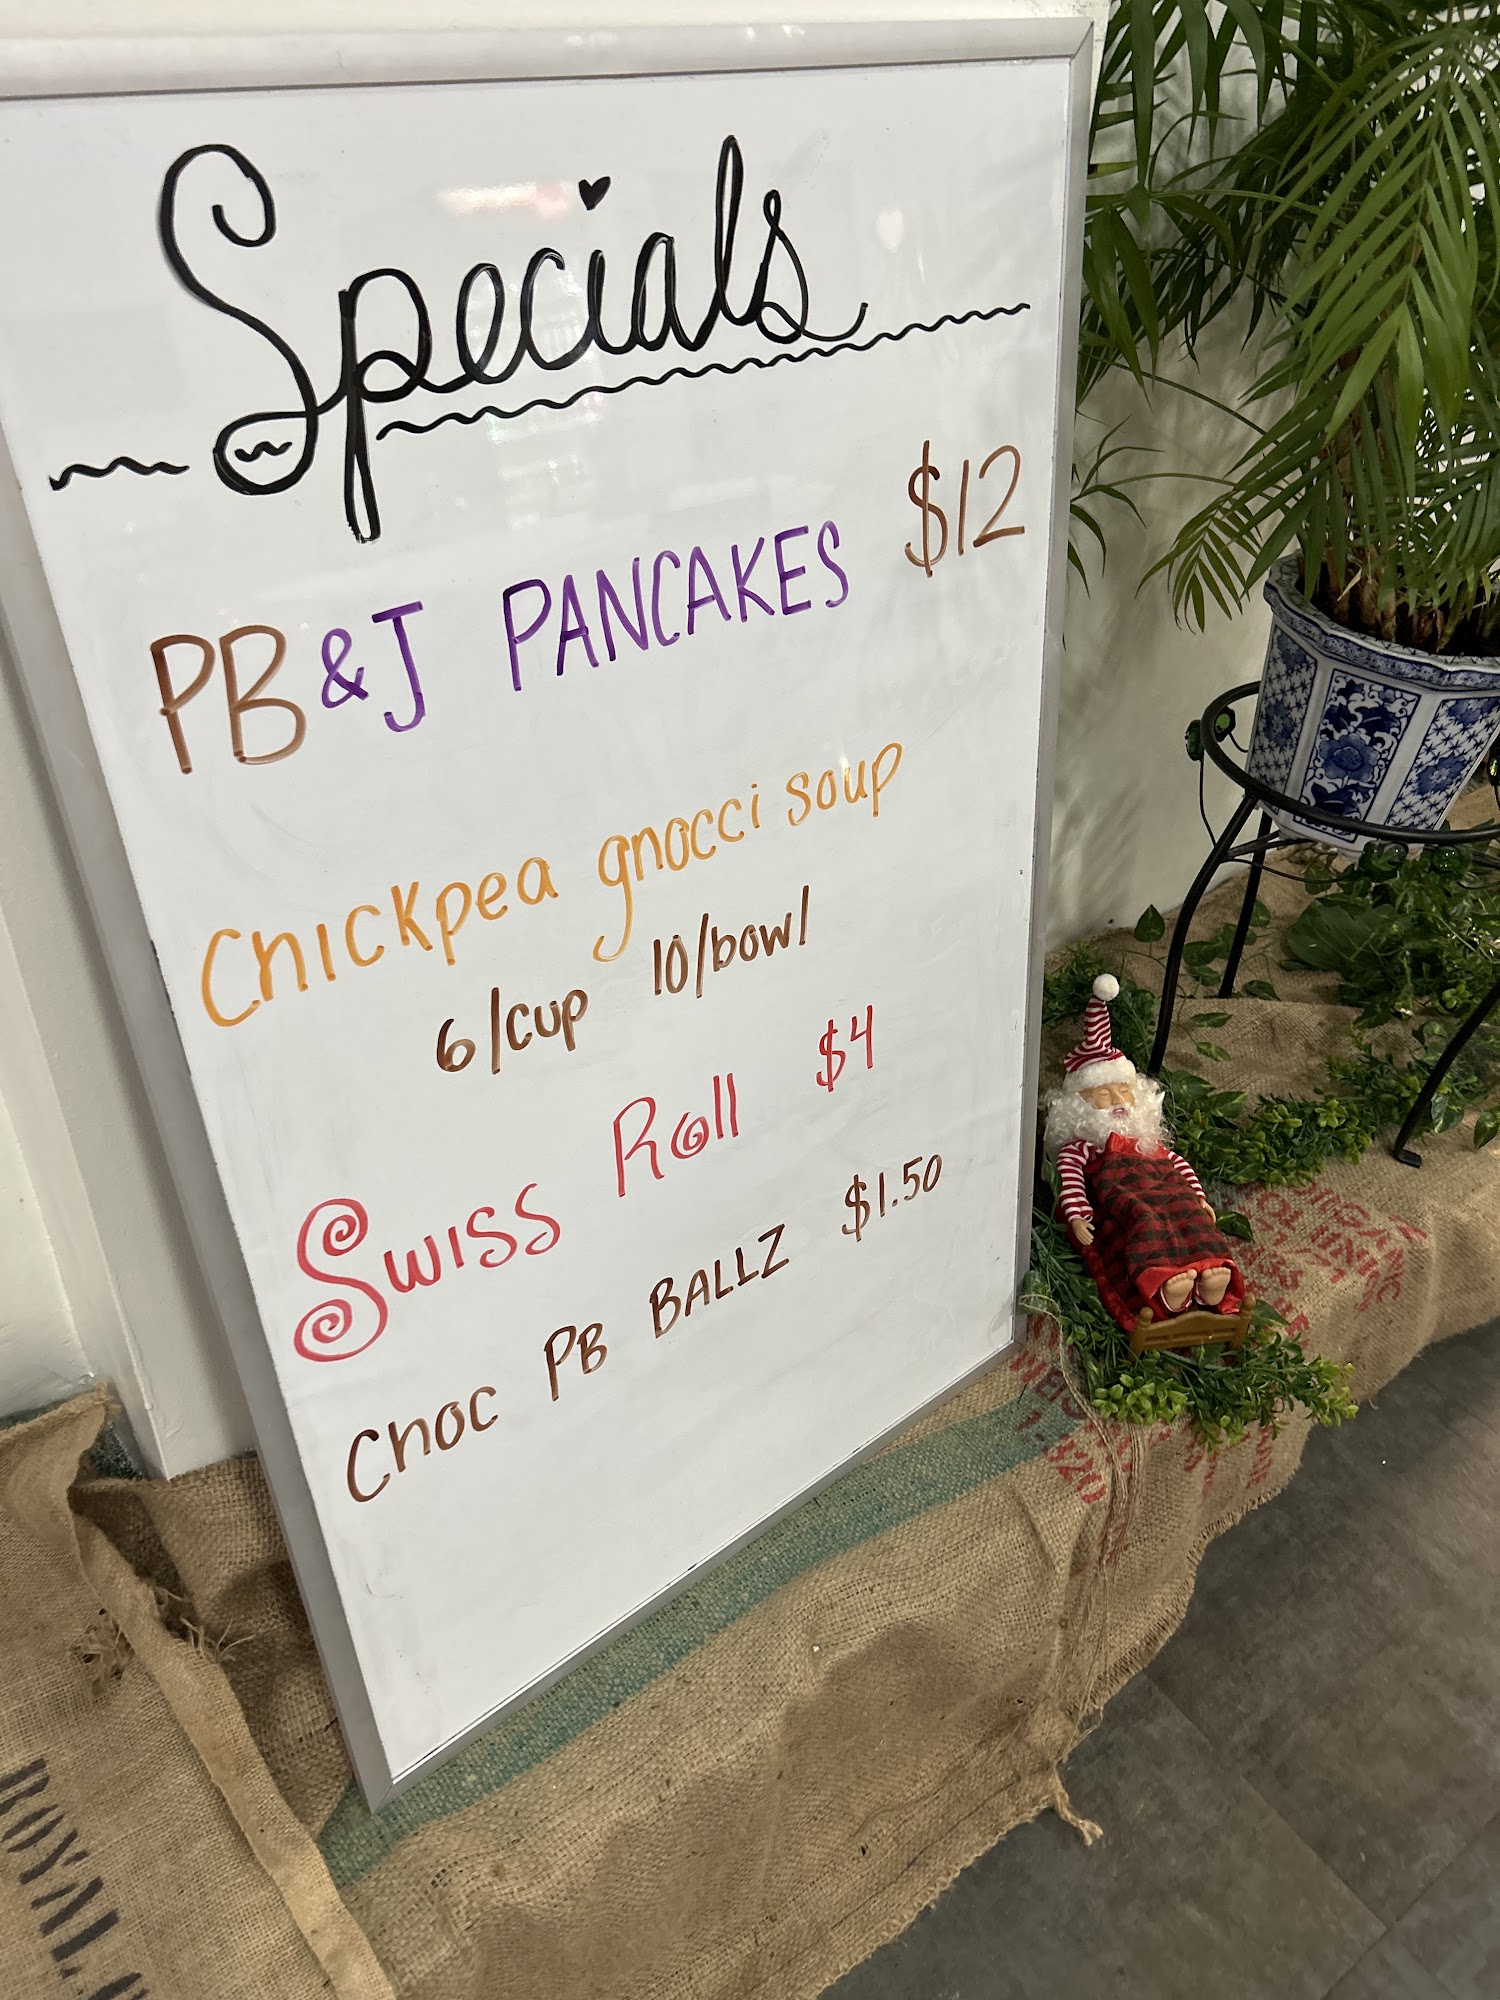 Specials
PB&J PANCAKES $12
Chickpea gnocci soup
6/cup 10/bowl
Swiss Roll $4
Choc PB BALLZ $1.50
ROYAL
1-320